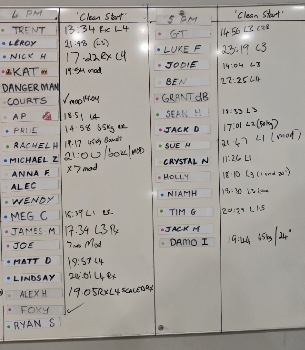 4 PM 'Clean Start'
TRENT 13:34 Rx L4
LEROY 21:43 (L5)
NICK H 17:22 Rx L4
KAT 19:54 mod
DANGERMAN
COURTS ✓ modified
AP 18:51
PRUE 14:58 65kg
RACHEL H 19:17 45kg
MICHAEL Z 21:00 / 60kg / MOD
ANNA F x7 mod
ALEC
WENDY
MEG C 16:39 L1
JAMES M 17:34 L3 Rx
JOE Mod
MATT D 19:57 L4
LINDSAY 20:01 L4 Rx
ALEX H 19:05 RX L4 SCALED RX
FOXY ✓
RYAN S
5 PM 'Clean Start'
GT 14:50 L3
LUKE F 23:19 L3
JODIE 14:04 L3
BEN 22:25 L4
GRANT dB
SEAN H 18:33 L3
JACK D 17:01 L2 (50kg)
SUE H 21:47 L1 (mod)
CRYSTAL N 11:26 L1
HOLLY 18:10 L3
NIAMH 19:30 L3
TIM G 20:29 L1.5
JACK M
DAMO I 19:24 65kg / 24"